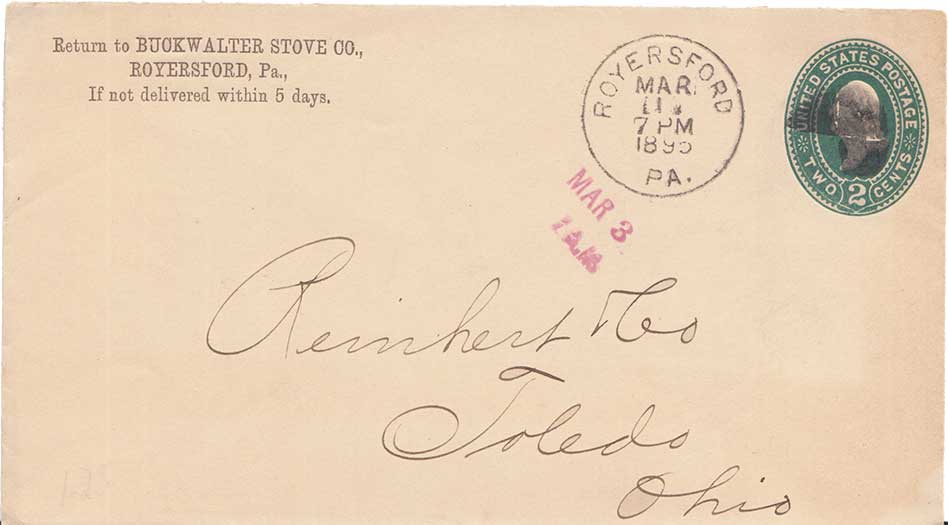 Return to BUCKWALTER STOVE CO.,
ROYERSFORD, Pa.,
If not delivered within 5 days.
ROYERSFORD
MAR
11
7 PM
1895
PA.
UNITED STATES POSTAGE
TWO 2 CENTS
MAR 3
Reinhert & Co
Toledo
Ohio